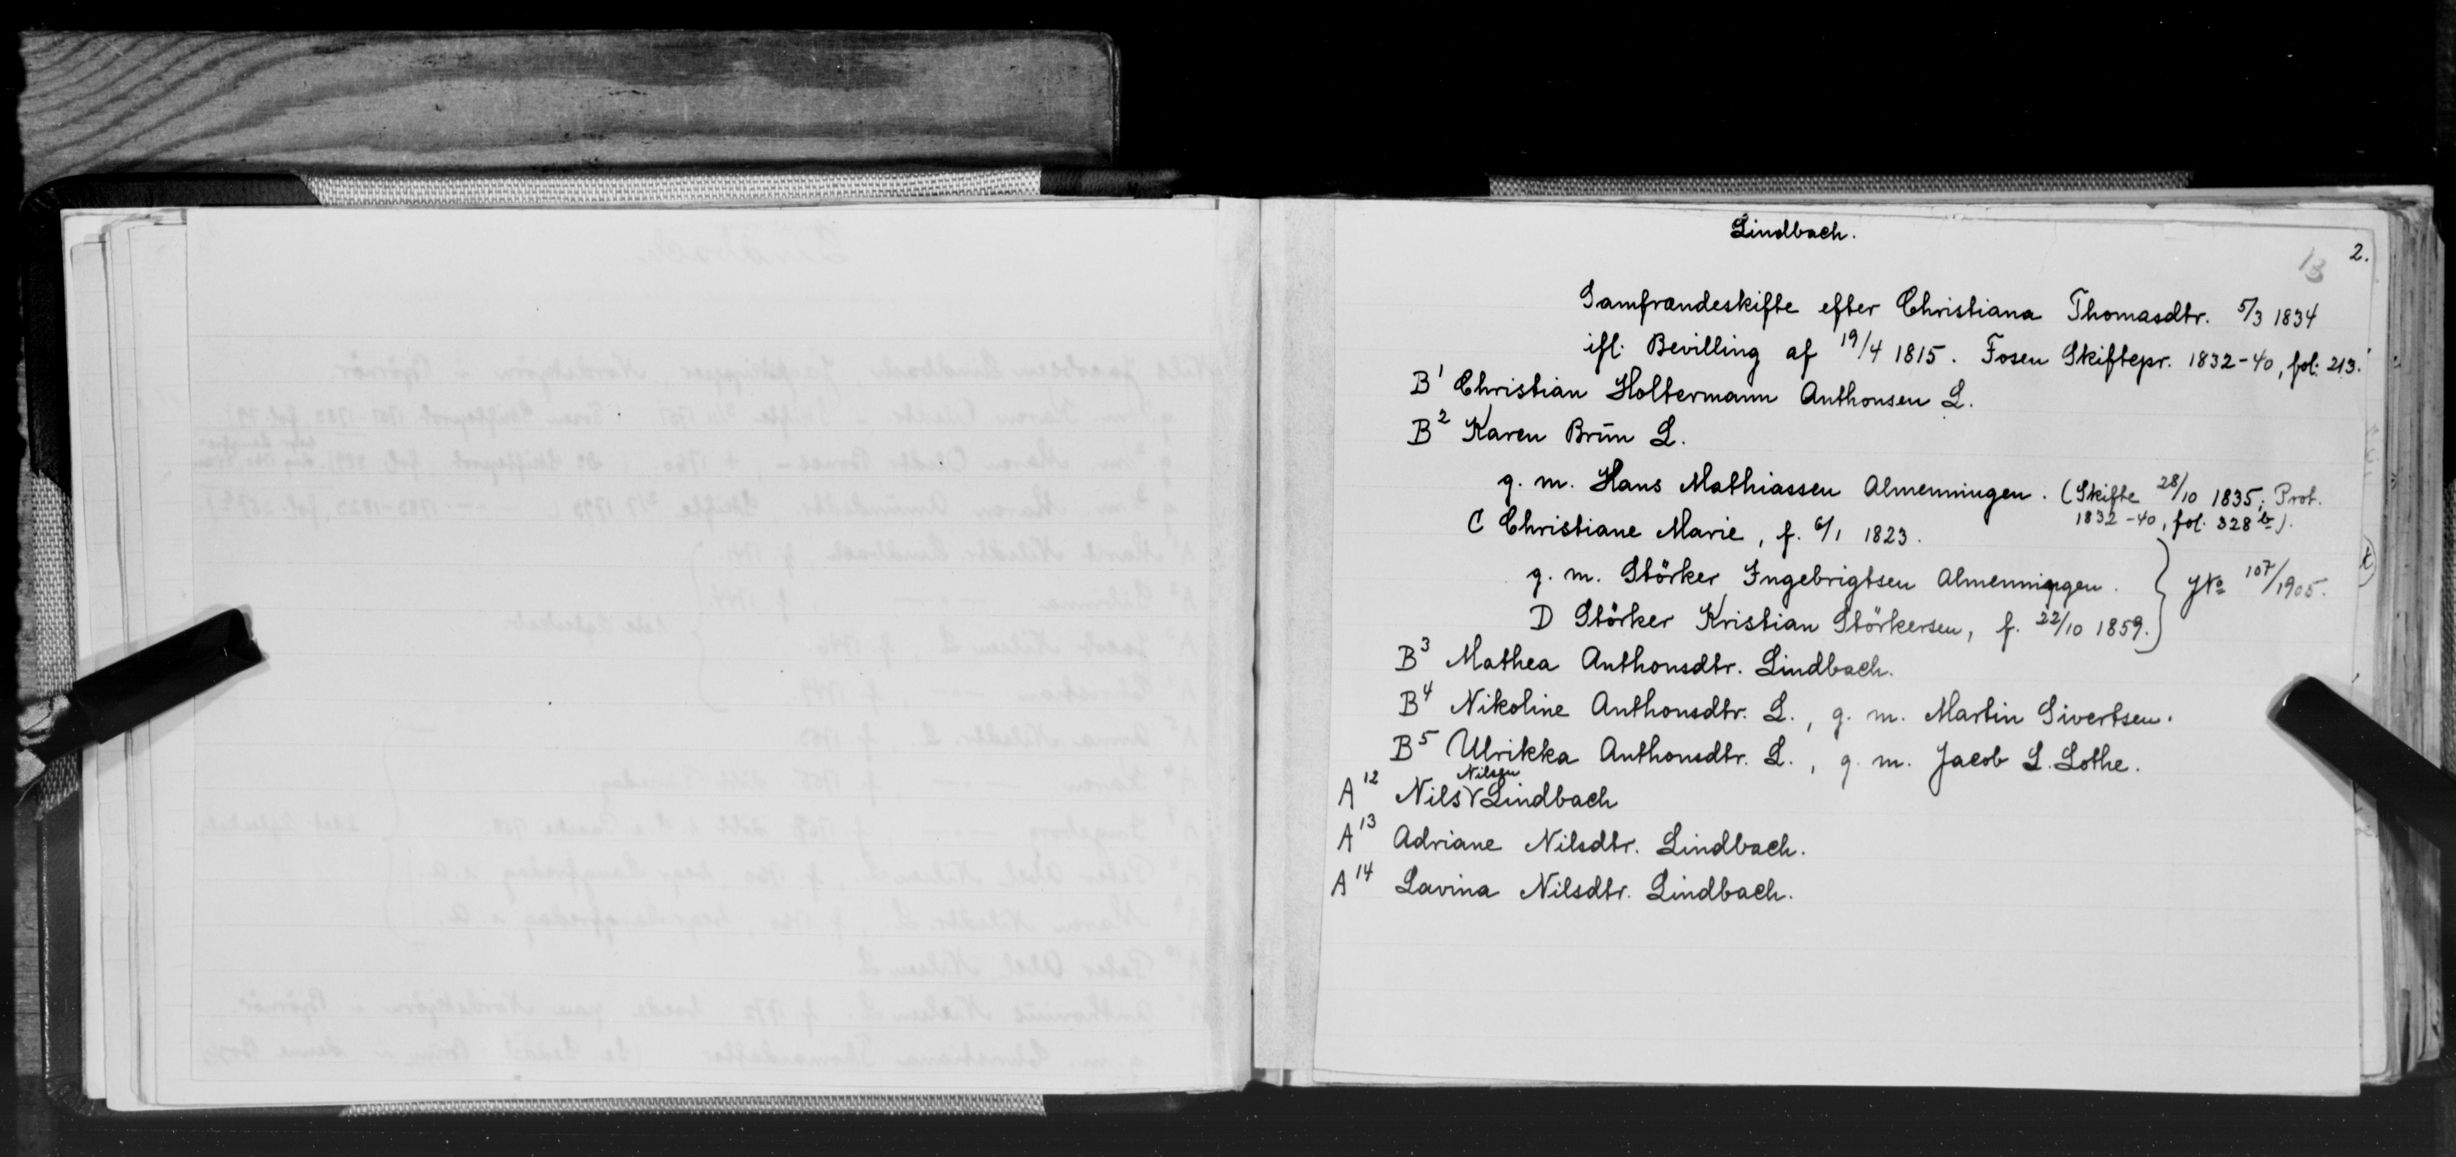 Lindbach.
2.
13
Samfrændeskifte efter Christiana Thomasdtr. 5/3 1834
ifl. Bevilling af 19/4 1815. Fosen Skiftepr. 1832-40, fol. 213.
B1 Christian Holtermann Anthonsen L.
B2 Karen Brün L.
g. m. Hans Mathiassen Almenningen. (Skifte 28/10 1835; Prot.
1832-40, fol. 328 b).
C Christiane Marie, f. 6/1 1823.
g. m. Störker Ingebrigtsen Almenningen.
D Störker Kristian Störkersen, f. 22/10 1859.
JNo 107/1905.
B3 Mathea Anthonsdtr. Lindbach.
B4 Nikoline Anthonsdtr. L., g. m. Martin Sivertsen.
B5 Ulrikka Anthonsdtr. L., g. m. Jacob L. Lothe.
A12 Nils Nilsen Lindbach
A13 Adriane Nilsdtr. Lindbach.
A14 Lavina Nilsdtr. Lindbach.